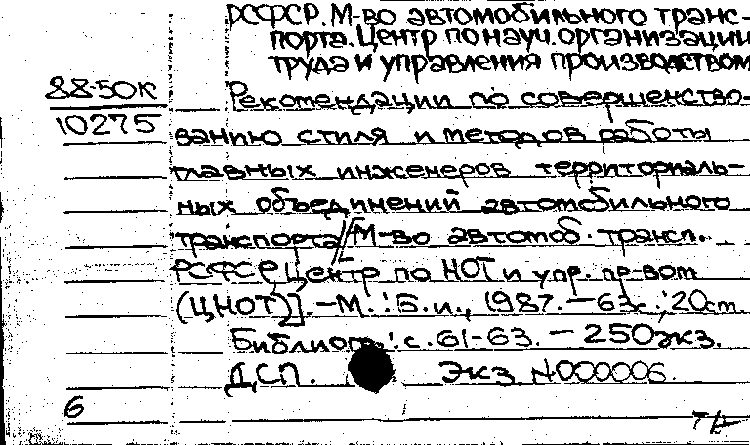 РСФСР. М-во автомобильного транс-
порта. Центр по науч. организации
труда и управления производством
88-50К
Рекомендации по совершенство-
10275
ванию стиля и методов работы
главных инженеров территориаль-
ных объединений автомобильного
транспорта // М-во автомоб. трансп.
РСФСР, Центр по НОТ и упр. пр-вом
(ЦНОТ)]. - М. : Б.и., 1987. - 63с.; 20 см.
Библиогр.: с. 61-63. - 250 экз.
ДСП. Экз N000006.
6